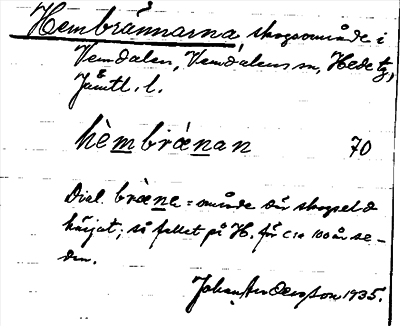 Hembrännarna, skogsområde i
Vemdalen, Vemdalens sn, Hede tg,
Jämtl. l.
hèmbrǽnan 70
Dial. bræna = område där skogseld
härjat; så fallet på H. för c:a 100 år se-
dan.
Johan Olofsson 1935.